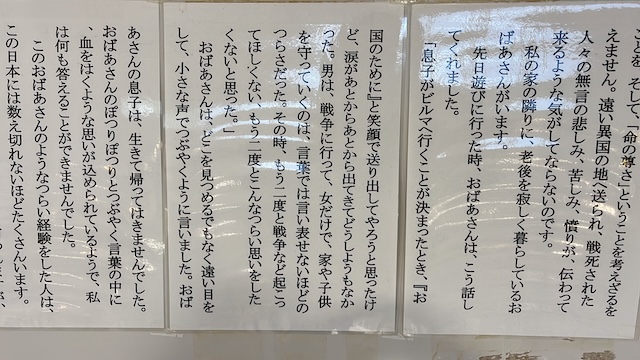 ことを、そして、「命の尊さ」ということを考えざるを
えません。遠い異国の地へ送られ、戦死された
人々の無言の悲しみ、苦しみ、憤りが、伝わって
来るような気がしてならないのです。
私の家の隣りに、老後を寂しく暮らしているお
ばあさんがいます。
先日遊びに行った時、おばあさんは、こう話し
てくれました。
「息子がビルマへ行くことが決まったとき、『お
国のために』と笑顔で送り出してやろうと思ったけ
ど、涙があとからあとから出てきてどうしようもなか
った。男は、戦争に行って、女だけで、家や子供
を守っていくのは、言葉では言い表せないほどの
つらさだった。その時、もう二度と戦争など起こっ
てほしくない、もう二度とこんなつらい思いをした
くないと思った。」
おばあさんは、どこを見つめるでもなく遠い目を
して、小さな声でつぶやくように言いました。おば
あさんの息子は、生きて帰ってはきませんでした。
おばあさんのぽつりぽつりとつぶやく言葉の中に
、血をはくような思いが込められているようで、私
は何も答えることができませんでした。
このおばあさんのようなつらい経験をした人は、
この日本には数え切れないほどたくさんいます。